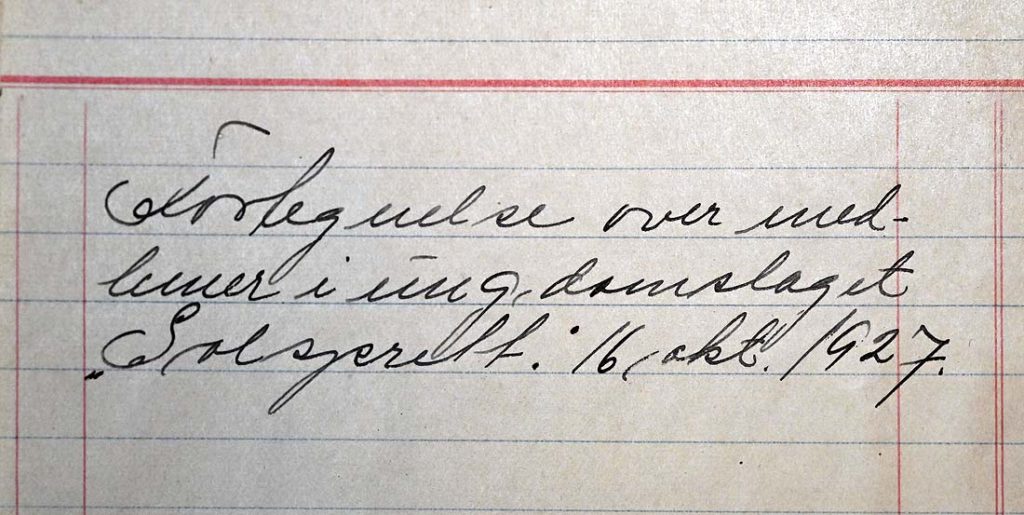 Fortegnelse over med-
lemer i ungdomslaget
„Solsprett". 16, okt. 1927.